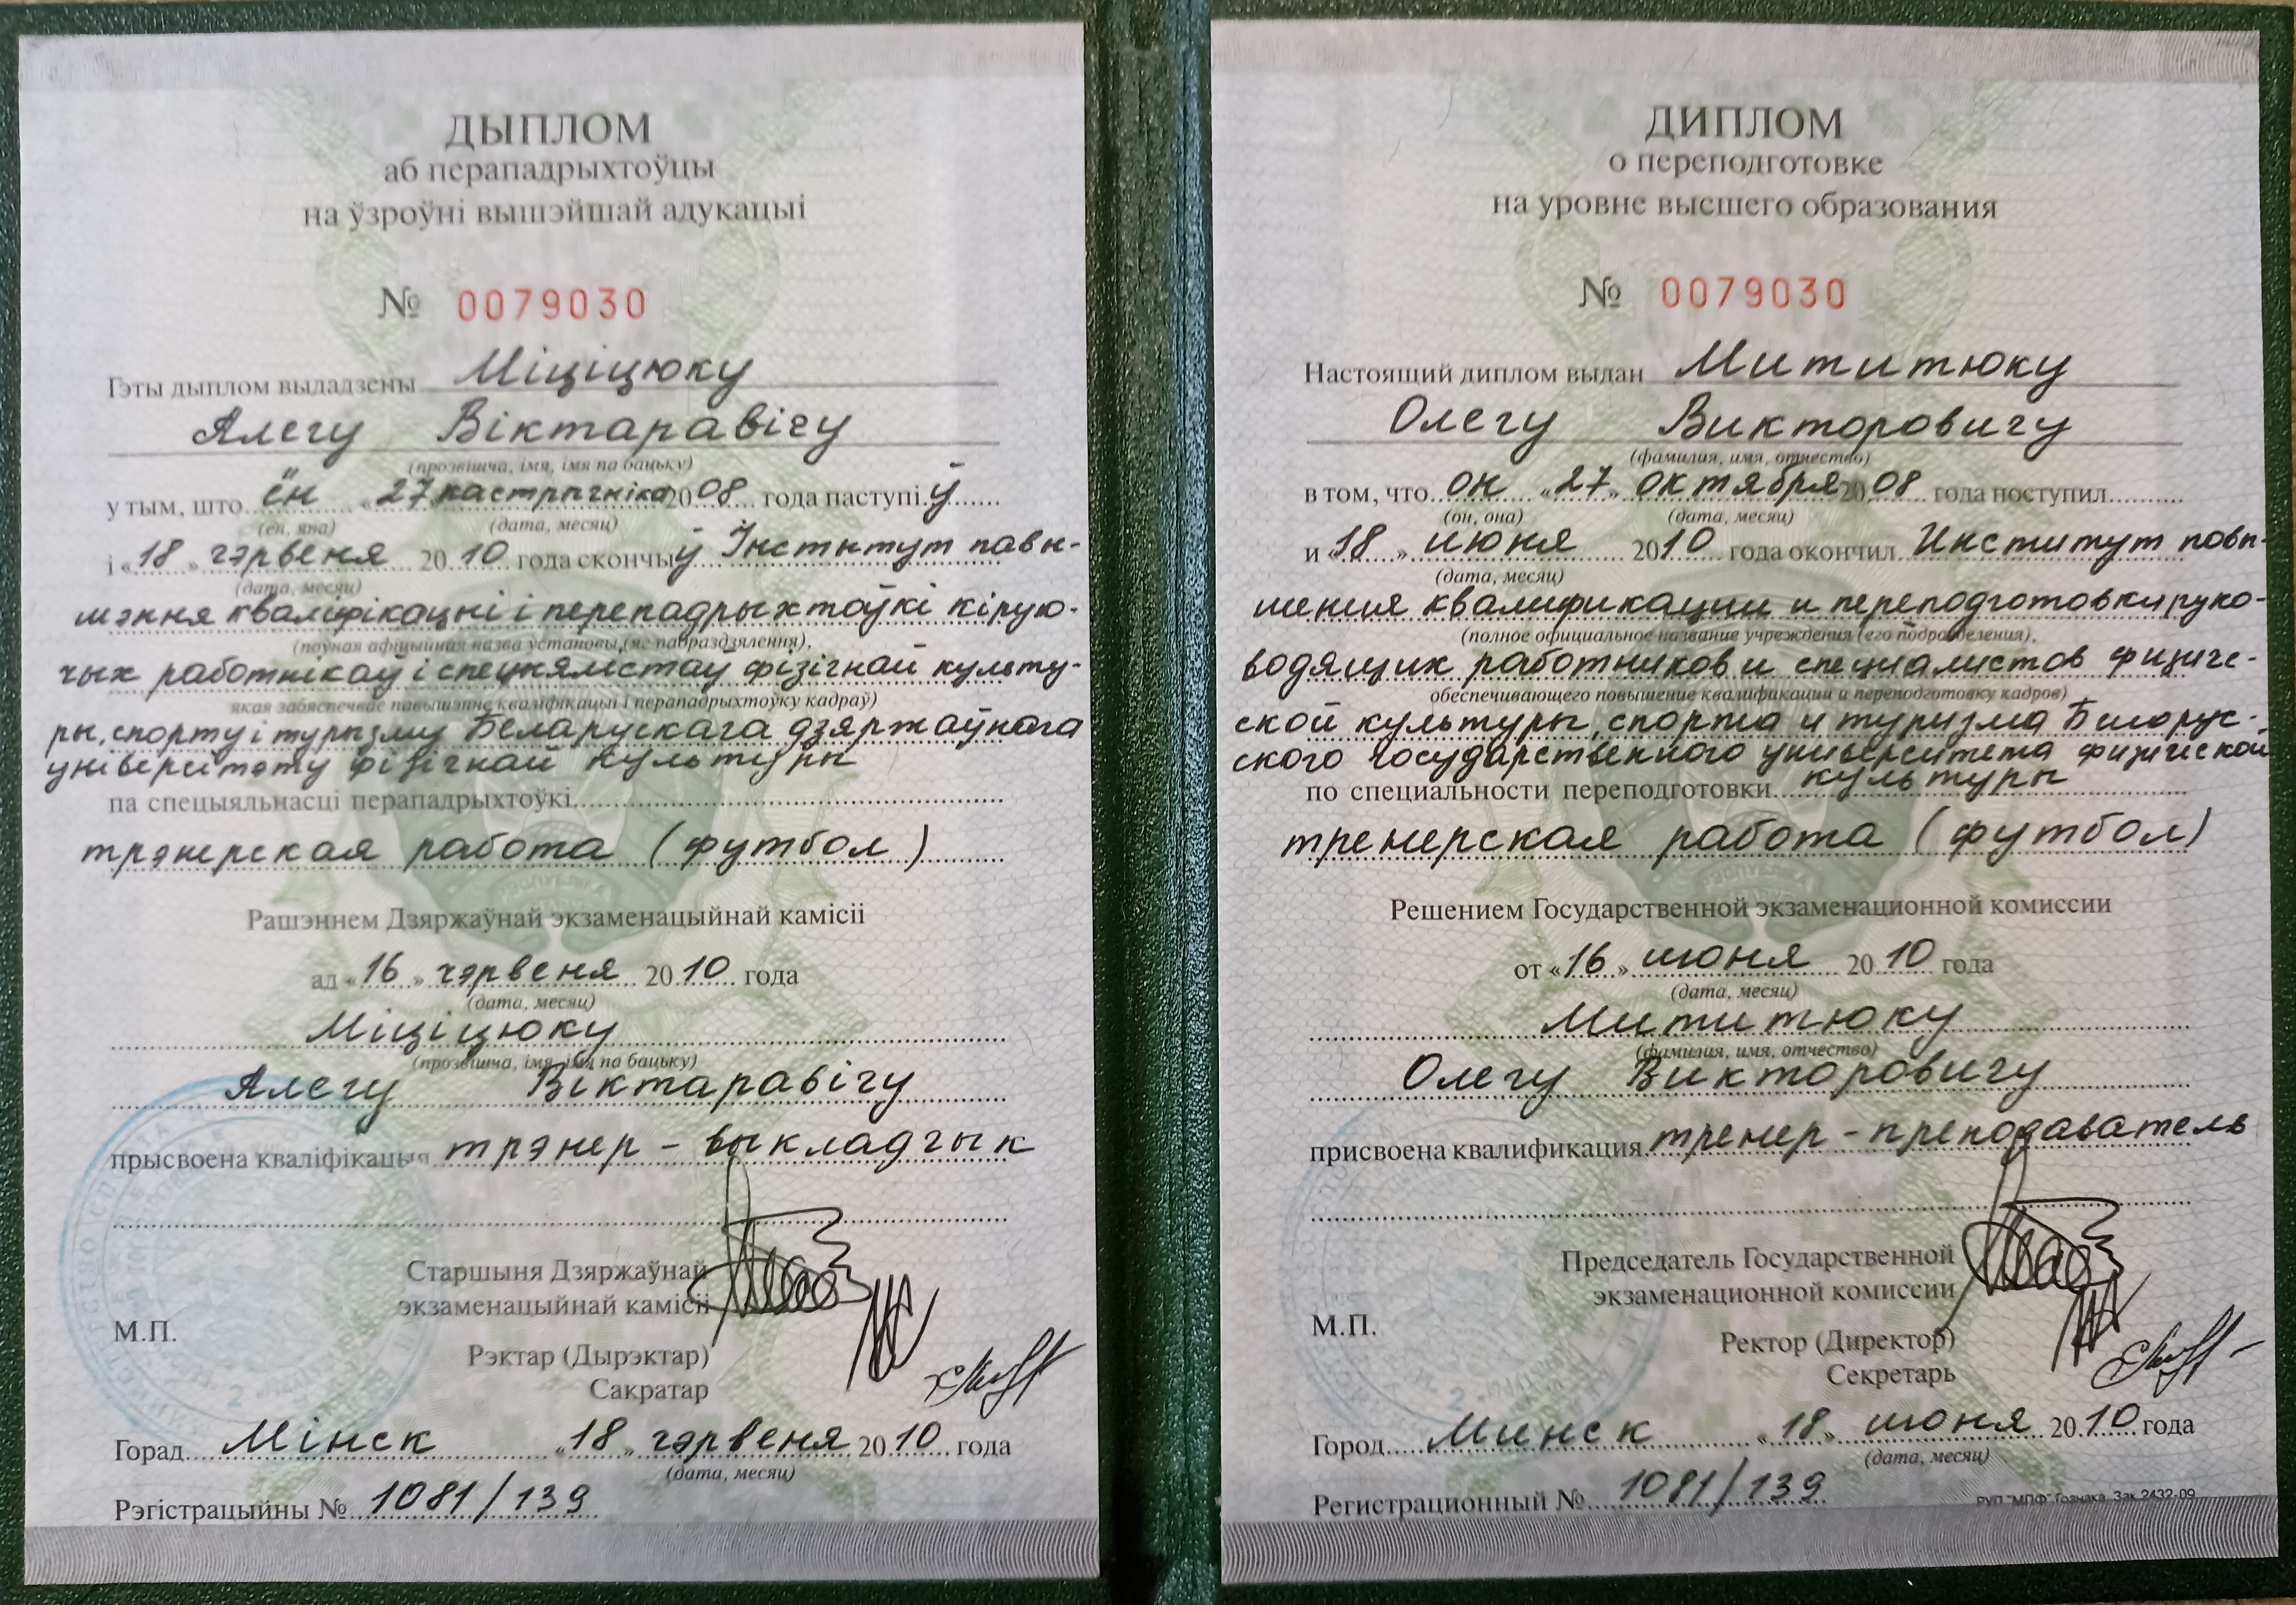 ДЫПЛОМ
аб перападрыхтоўцы
на ўзроўні вышэйшай адукацыі
№ 0079030
Гэты дыплом выдадзены Міціцюку
Алегу Віктаравічу
(прозвішча, імя, імя па бацьку)
у тым, што ён «27 кастрычніка 2008 года паступіў
(ён, яна) (дата, месяц)
і «18» чэрвеня 2010 года скончыў Інстытут павы-
(дата, месяц)
шэння кваліфікацыі і перападрыхтоўкі кірую-
(поўная афіцыйная назва установы (яе падраздзялення),
чых работнікаў і спецыялістаў фізічнай культу-
якая забяспечвае павышэнне кваліфікацыі і перападрыхтоўку кадраў)
ры, спорту і турызму Беларускага дзяржаўнага
універсітэту фізічнай культуры
па спецыяльнасці перападрыхтоўкі
трэнерская работа (футбол)
Рашэннем Дзяржаўнай экзаменацыйнай камісіі
ад «16» чэрвеня 2010 года
(дата, месяц)
Міціцюку
(прозвішча, імя, імя па бацьку)
Алегу Віктаравічу
прысвоена кваліфікацыя трэнер - выкладчык
Старшыня Дзяржаўнай
экзаменацыйнай камісіі
М.П.
Рэктар (Дырэктар)
Сакратар
Горад Мінск «18» чэрвеня 2010 года
(дата, месяц)
Рэгістрацыйны № 1081/139
ДИПЛОМ
о переподготовке
на уровне высшего образования
№ 0079030
Настоящий диплом выдан Мититюку
Олегу Викторовичу
(фамилия, имя, отчество)
в том, что он «27» октября 2008 года поступил
(он, она) (дата, месяц)
и «18» июня 2010 года окончил Институт повы-
(дата, месяц)
шения квалификации и переподготовки руко-
(полное официальное название учреждения (его подразделения),
водящих работников и специалистов физиче-
обеспечивающего повышение квалификации и переподготовку кадров)
ской культуры, спорта и туризма Белорус-
ского государственного университета физической
по специальности переподготовки культуры
тренерская работа (футбол)
Решением Государственной экзаменационной комиссии
от «16» июня 2010 года
(дата, месяц)
Мититюку
(фамилия, имя, отчество)
Олегу Викторовичу
присвоена квалификация тренер - преподаватель
Председатель Государственной
экзаменационной комиссии
М.П.
Ректор (Директор)
Секретарь
Город Минск «18» июня 2010 года
(дата, месяц)
Регистрационный № 1081/139
РУП "МПФ" Гознака. Зак.2432-09